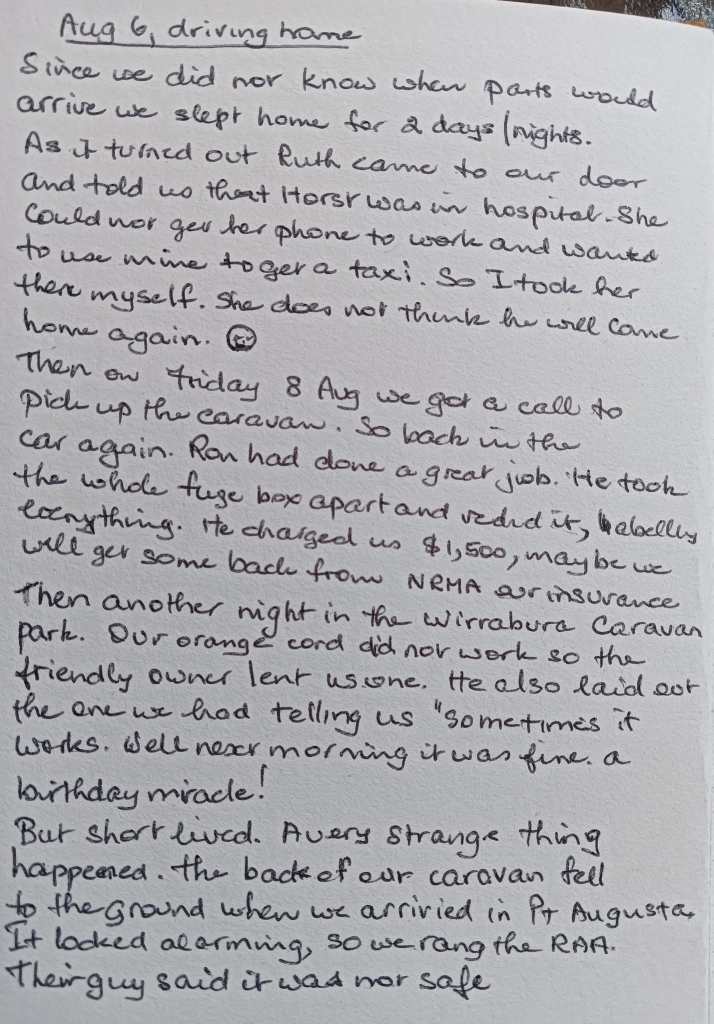 Aug 6, driving home
Since we did not know when parts would
arrive we slept home for 2 days/nights.
As it turned out Ruth came to our door
and told us that Horst was in hospital. She
could not get her phone to work and wanted
to use mine to get a taxi. So I took her
there myself. She does not think he will come
home again.
Then on Friday 8 Aug we got a call to
pick up the caravan. So back in the
car again. Ron had done a great job. He took
the whole fuze box apart and redid it, labelling
everything. He charged us $1,500, maybe we
will get some back from NRMA our insurance
Then another night in the Wirrabura Caravan
park. Our orange cord did not work so the
friendly owner lent us one. He also laid out
the one we had telling us "sometimes it
works. Well next morning it was fine. a
birthday miracle!
But short lived. A very strange thing
happened. the back of our caravan fell
to the ground when we arrivied in Pt Augusta,
It looked alarming, so we rang the RAA.
Their guy said it was not safe